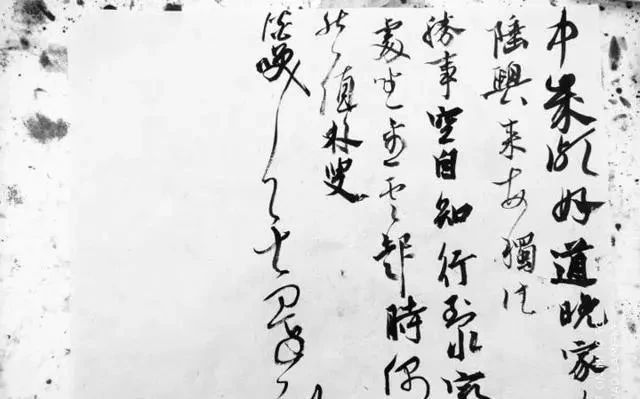 中歲頗好道晚家
陲興來每獨往
勝事空自知行到水窮
處坐看雲起時偶
然值林叟
談笑